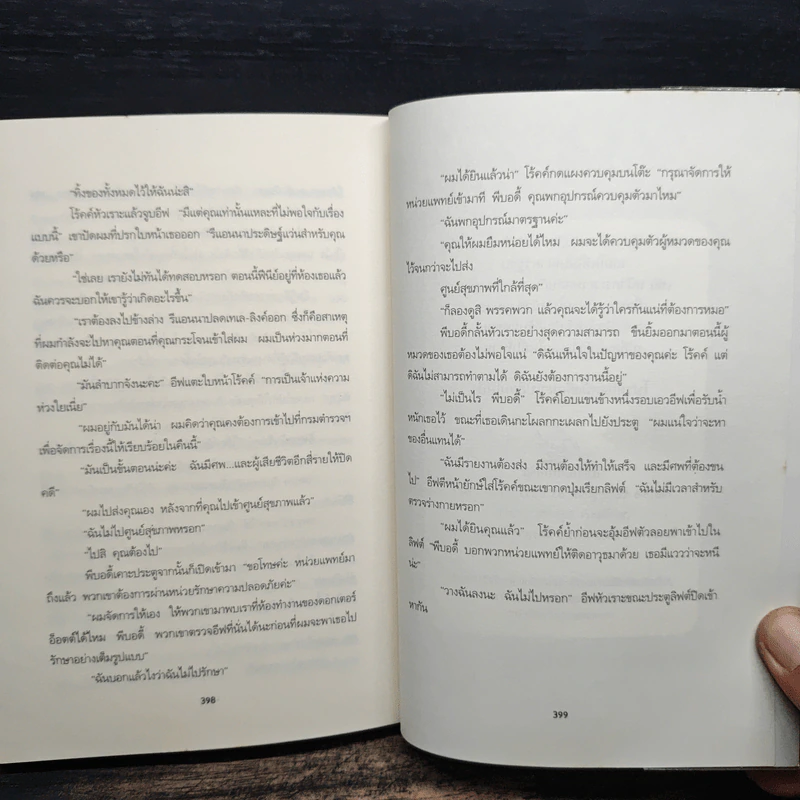 "ทิ้งของทั้งหมดไว้ให้ฉันน่ะสิ"
โร้คค์หัวเราะแล้วจูบอีฟ "มีแต่คุณเท่านั้นแหละที่ไม่พอใจกับเรื่อง
แบบนี้" เขาปัดผมที่ปรกใบหน้าเธอออก "รีแอนนาประดิษฐ์แว่นสำหรับคุณ
ด้วยหรือ"
"ใช่เลย เรายังไม่ทันได้ทดสอบหรอก ตอนนี้ฟีนีย์อยู่ที่ห้องเธอแล้ว
ฉันควรจะบอกให้เขารู้ว่าเกิดอะไรขึ้น"
"เราต้องลงไปข้างล่าง รีแอนนาปลดเทเล-ลิงค์ออก ซึ่งก็คือสาเหตุ
ที่ผมกำลังจะไปหาคุณตอนที่คุณกระโจนเข้าใส่ผม ผมเป็นห่วงมากตอนที่
ติดต่อคุณไม่ได้"
"มันลำบากจังนะคะ" อีฟแตะใบหน้าโร้คค์ "การเป็นเจ้าแห่งความ
ห่วงใยเนี่ย"
"ผมอยู่กับมันได้น่า ผมคิดว่าคุณคงต้องการเข้าไปที่กรมตำรวจฯ
เพื่อจัดการเรื่องนี้ให้เรียบร้อยในคืนนี้"
"มันเป็นขั้นตอนน่ะค่ะ ฉันมีศพ...และผู้เสียชีวิตอีกสี่รายให้ปิด
คดี"
"ผมไปส่งคุณเอง หลังจากที่คุณไปเข้าศูนย์สุขภาพแล้ว"
"ฉันไม่ไปศูนย์สุขภาพหรอก"
"ไปสิ คุณต้องไป"
พีบอดี้เคาะประตูจากนั้นก็เปิดเข้ามา "ขอโทษค่ะ หน่วยแพทย์มา
ถึงแล้ว พวกเขาต้องการผ่านหน่วยรักษาความปลอดภัยค่ะ"
"ผมจัดการให้เอง ให้พวกเขามาพบเราที่ห้องทำงานของดอกเตอร์
อ็อตต์ได้ไหม พีบอดี้ พวกเขาตรวจอีฟที่นั่นได้นะก่อนที่ผมจะพาเธอไป
รักษาอย่างเต็มรูปแบบ"
"ฉันบอกแล้วไงว่าฉันไม่ไปรักษา"
398
"ผมได้ยินแล้วน่า" โร้คค์กดแผงควบคุมบนโต๊ะ "กรุณาจัดการให้
หน่วยแพทย์เข้ามาที พีบอดี้ คุณพกอุปกรณ์ควบคุมตัวมาไหม"
"ฉันพกอุปกรณ์มาตรฐานค่ะ"
"คุณให้ผมยืมหน่อยได้ไหม ผมจะได้ควบคุมตัวผู้หมวดของคุณ
ไว้จนกว่าจะไปส่ง
ศูนย์สุขภาพที่ใกล้ที่สุด"
"ก็ลองดูสิ พรรคพวก แล้วคุณจะได้รู้ว่าใครกันแน่ที่ต้องการหมอ"
พีบอดี้กลั้นหัวเราะอย่างสุดความสามารถ ขืนยิ้มออกมาตอนนี้ผู้
หมวดของเธอต้องไม่พอใจแน่ "ดิฉันเห็นใจในปัญหาของคุณค่ะ โร้คค์ แต่
ดิฉันไม่สามารถทำตามได้ ดิฉันยังต้องการงานนี้อยู่"
"ไม่เป็นไร พีบอดี้" โร้คค์โอบแขนข้างหนึ่งรอบเอวอีฟเพื่อรับน้ำ
หนักเธอไว้ ขณะที่เธอเดินกะโผลกกะเผลกไปยังประตู "ผมแน่ใจว่าจะหา
ของอื่นแทนได้"
"ฉันมีรายงานต้องส่ง มีงานต้องให้ทำให้เสร็จ และมีศพที่ต้องขน
ไป" อีฟตีหน้ายักษ์ใส่โร้คค์ขณะเขากดปุ่มเรียกลิฟต์ "ฉันไม่มีเวลาสำหรับ
ตรวจร่างกายหรอก"
"ผมได้ยินคุณแล้ว" โร้คค์ย้ำก่อนจะอุ้มอีฟตัวลอยพาเข้าไปใน
ลิฟต์ "พีบอดี้ บอกพวกหน่วยแพทย์ให้ติดอาวุธมาด้วย เธอมีแววว่าจะหนี
น่ะ"
"วางฉันลงนะ ฉันไม่ไปหรอก" อีฟหัวเราะขณะประตูลิฟต์ปิดเข้า
หากัน
399